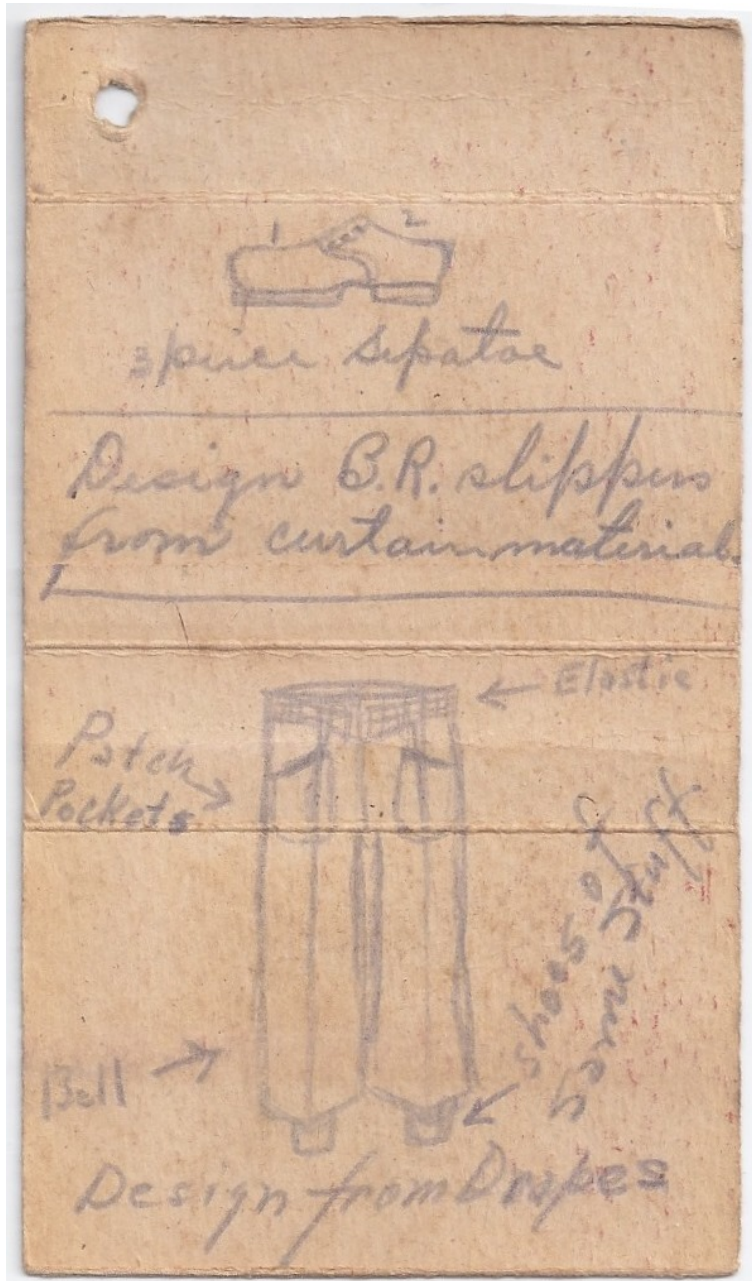 1 2
3 piece Sepatae
Design B.R. slippers
from curtain material
Elastic
Patch
Pockets
shoes of
same stuff
Bell
Design from Drapes